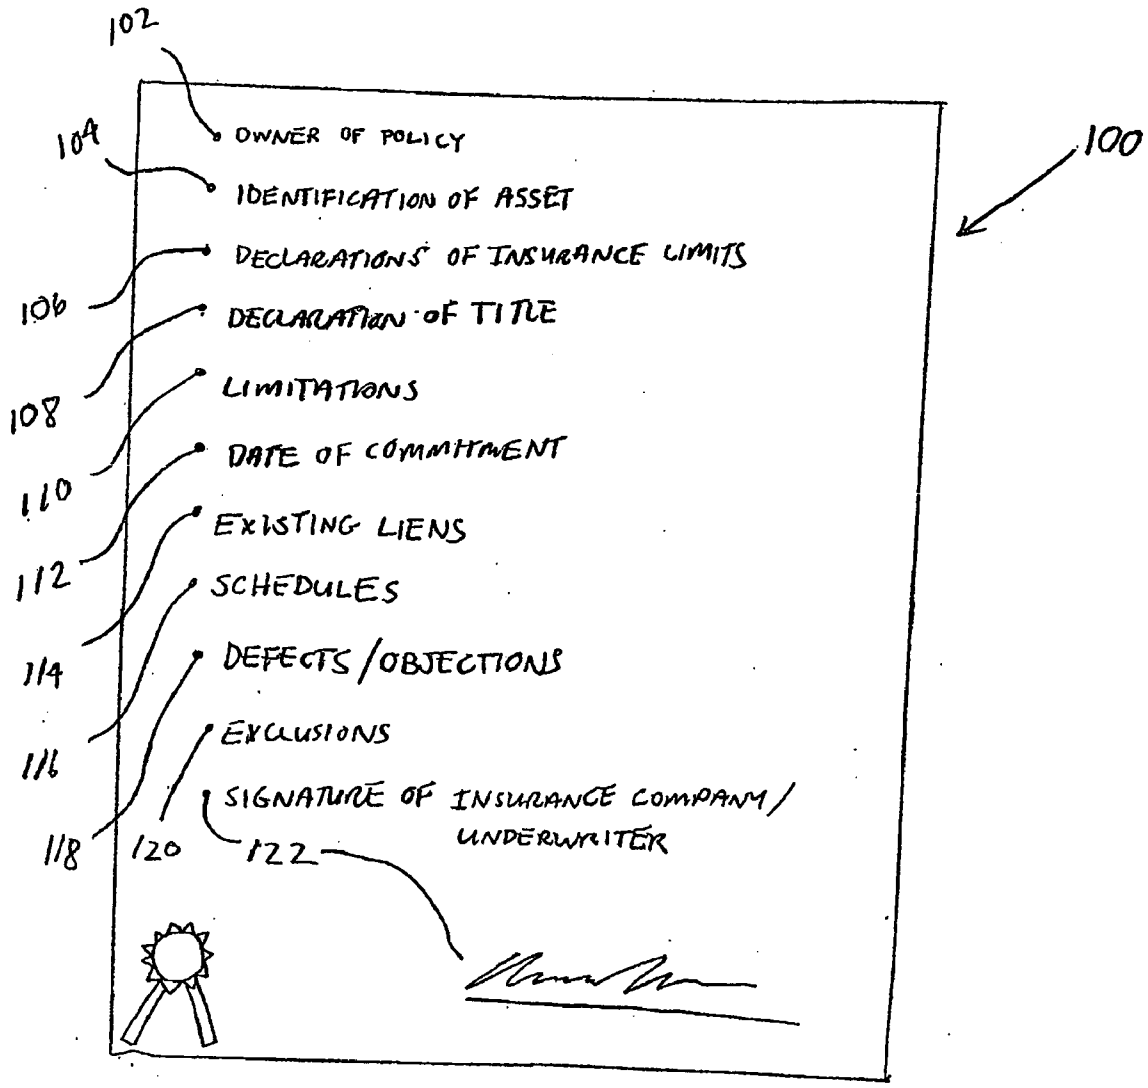 102
104
100
OWNER OF POLICY
IDENTIFICATION OF ASSET
DECLARATIONS OF INSURANCE LIMITS
106
DECLARATION OF TITLE
108
LIMITATIONS
110
DATE OF COMMITMENT
112
EXISTING LIENS
114
SCHEDULES
116
DEFECTS/OBJECTIONS
118
EXCLUSIONS
120
SIGNATURE OF INSURANCE COMPANY/
UNDERWRITER
122